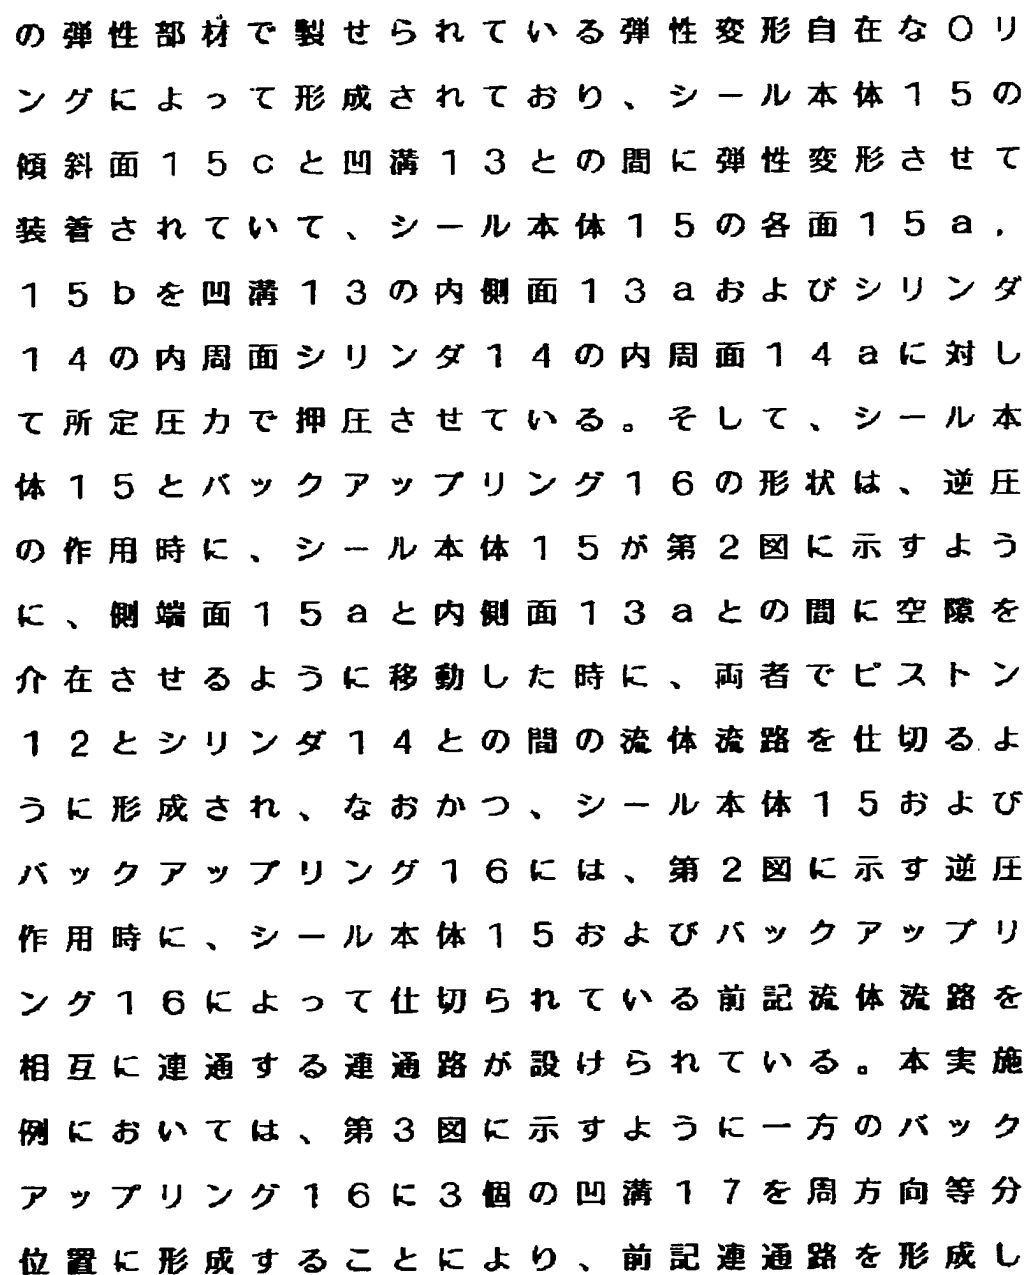 の弾性部材で製せられている弾性変形自在なOリ
ングによって形成されており、シール本体15の
傾斜面15cと凹溝13との間に弾性変形させて
装着されていて、シール本体15の各面15a,
15bを凹溝13の内側面13aおよびシリンダ
14の内周面シリンダ14の内周面14aに対し
て所定圧力で押圧させている。そして、シール本
体15とバックアップリング16の形状は、逆圧
の作用時に、シール本体15が第2図に示すよう
に、側端面15aと内側面13aとの間に空隙を
介在させるように移動した時に、両者でピストン
12とシリンダ14との間の流体流路を仕切るよ
うに形成され、なおかつ、シール本体15および
バックアップリング16には、第2図に示す逆圧
作用時に、シール本体15およびバックアップリ
ング16によって仕切られている前記流体流路を
相互に連通する連通路が設けられている。本実施
例においては、第3図に示すように一方のバック
アップリング16に3個の凹溝17を周方向等分
位置に形成することにより、前記連通路を形成し